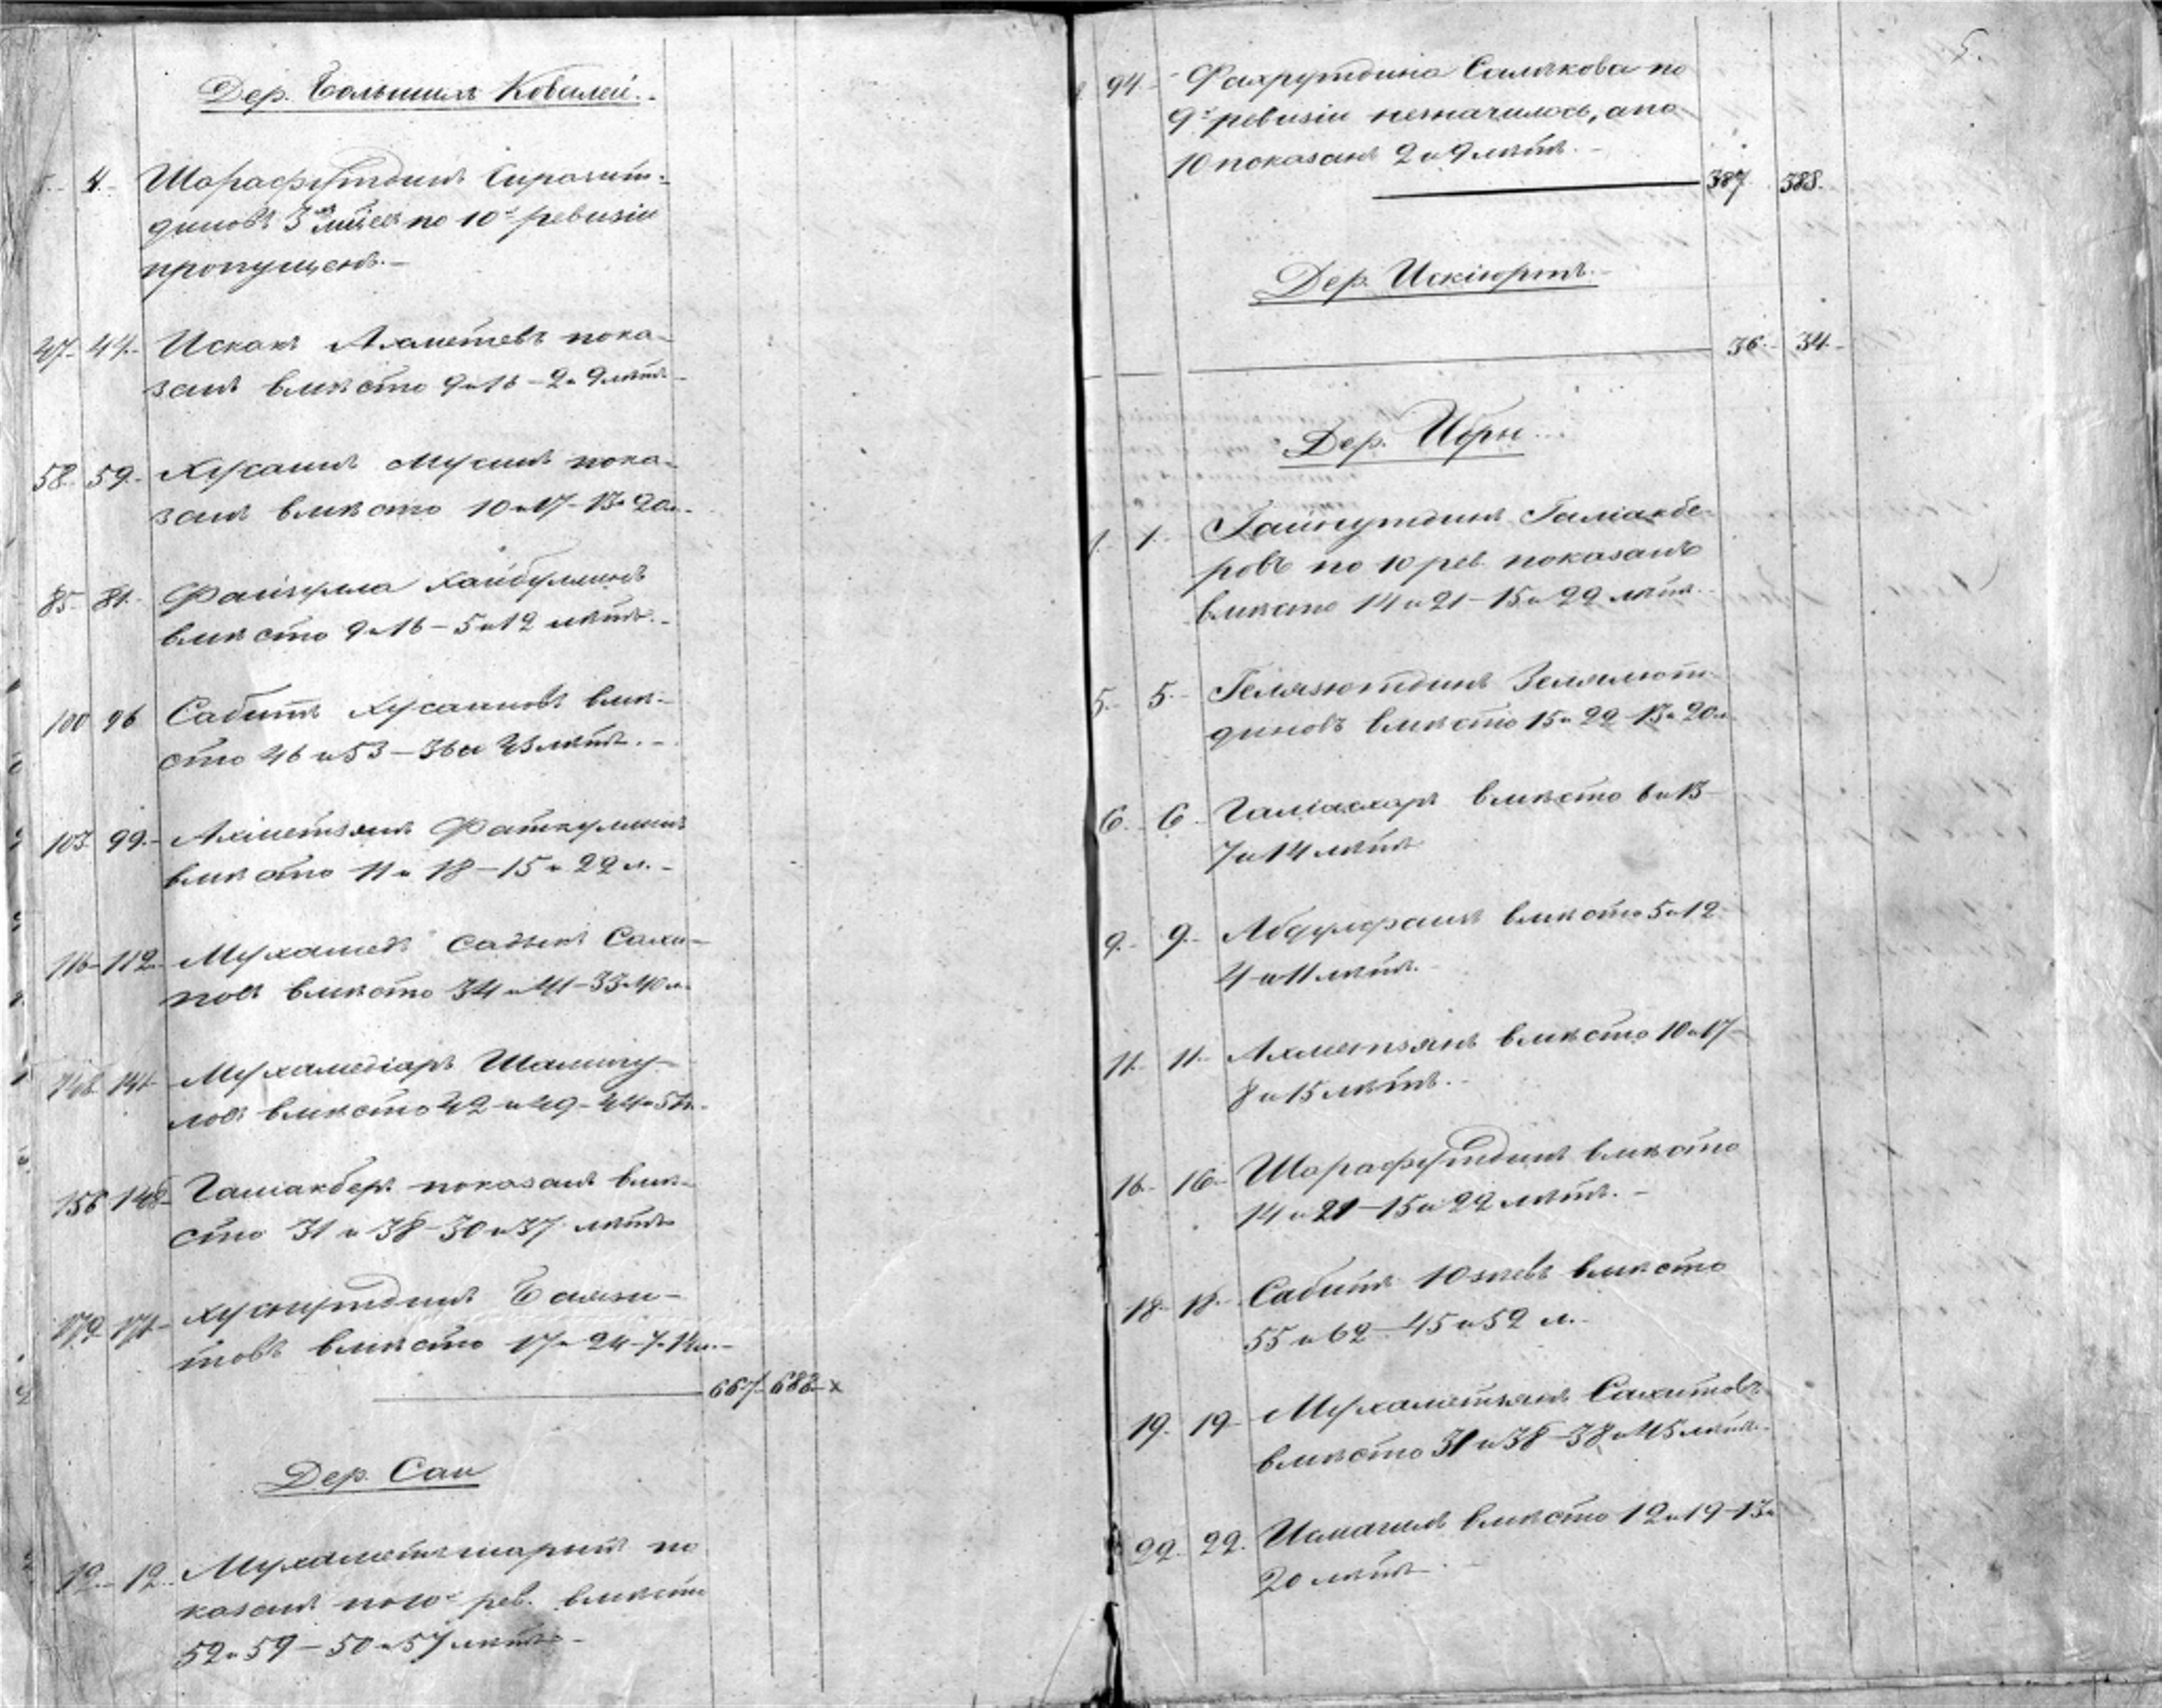 Дер. Большихъ Ковалей.
5. 4. Шарафутдинъ Сиразит-
диновъ 3хъ лѣтъ по 10й ревизіи
пропущенъ.
47. 44. Искакъ Ахметевъ пока-
занъ вмѣсто 9 и 16 - 2 и 9 лѣтъ
58. 59. Хусаинъ Мусинъ пока-
занъ вмѣсто 10 и 17 - 13 и 20 л.
85. 81. Файзулла Хайбуллинъ
вмѣсто 9 и 16 - 5 и 12 лѣтъ.
100 96 Сабитъ Хусаиновъ вмѣ-
сто 46 и 53 - 36 и 43 лѣтъ.
103 99. Ахметзянъ Фаткуллинъ
вмѣсто 11 и 18 - 15 и 22 л.
116 112 Мухамедъ Садыкъ Сахи-
повъ вмѣсто 34 и 41 - 33 и 40 л.
148 144 Мухамедіаръ
ловъ вмѣсто 42 и 49 - 44 и 51 л.
156 148 Галіакберъ показанъ вмѣ-
сто 31 и 38 - 30 и 37 лѣтъ
179 171 Хуснутдинъ Баязи-
товъ вмѣсто 17 и 24 - 7 и 14 л.
667. 682. x
Дер. Саи
12. 12. Мухаметшарипъ по
казанъ по 10й рев. вмѣсто
52 и 59 - 50 и 57 лѣтъ
5.
94 Фахрутдина Салихова по
9й ревизіи незначилось, а по
10 показанъ 2 и 9 лѣтъ.
387. 388.
Дер. Искіюртъ.
36. 34.
Дер. Ибри
1. 1. Гайнутдинъ Галіакбе-
ровъ по 10 рев. показанъ
вмѣсто 14 и 21 - 15 и 22 лѣтъ.
5. 5. Гелязютдинъ Зелялют-
диновъ вмѣсто 15 и 22 - 13 и 20 л.
6. 6. Галіаскаръ вмѣсто 6 и 13
7 и 14 лѣтъ
9. 9. вмѣсто 5 и 12
4 и 11 лѣтъ.
11. 11. Ахметзянъ вмѣсто 10 и 17
8 и 15 лѣтъ.
16. 16. Шарафутдинъ вмѣсто
14 и 21 - 15 и 22 лѣтъ.
18. 18. Сабитъ Юзеевъ вмѣсто
55 и 62 - 45 и 52 л.
19. 19. Мухаметзянъ Сахитовъ
вмѣсто 31 и 38 - 38 и 45 лѣтъ.
22. 22. Исмагилъ вмѣсто 12 и 19 - 13 и
20 лѣтъ